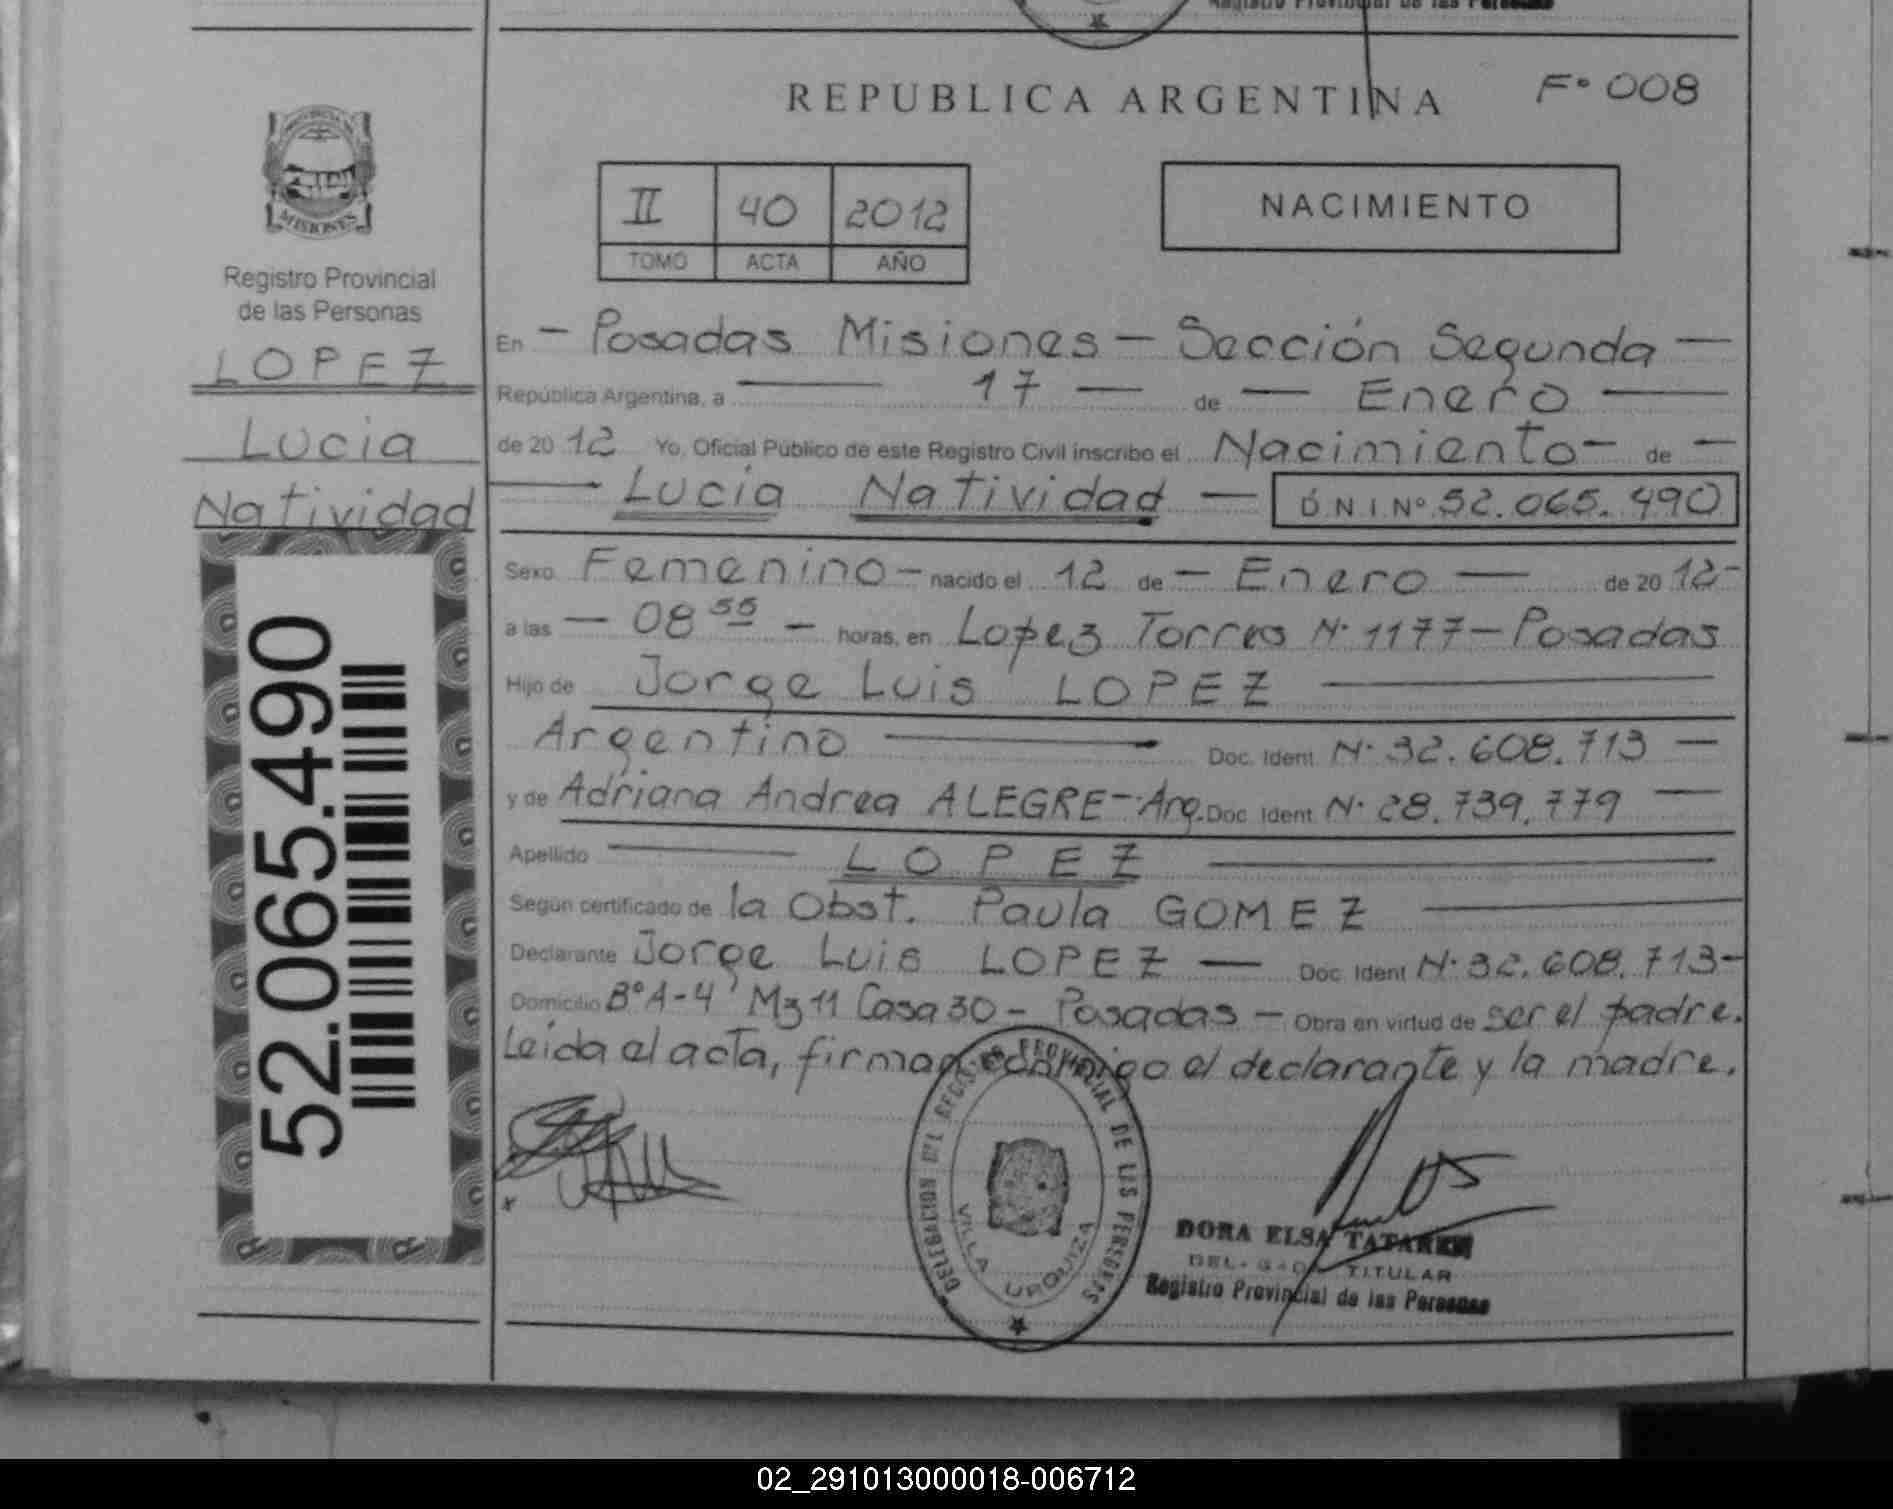 Registro Provincial de las Personas
REPUBLICA ARGENTINA
Fº 008
II 40 2012
TOMO ACTA AÑO
NACIMIENTO
MISIONES
Registro Provincial
de las Personas
LOPEZ
Lucia
Natividad
52.065.490
En - Posadas Misiones - Sección Segunda -
República Argentina, a 17 - de - Enero
de 2012 Yo, Oficial Público de este Registro Civil inscribo el Nacimiento - de -
Lucía Natividad - D.N.I. Nº 52.065.490
Sexo Femenino - nacido el 12 de - Enero - de 2012-
a las - 08 55 - horas, en Lopez Torres Nº 1177 - Posadas
Hijo de Jorge Luis LOPEZ
Argentino Doc. Ident. Nº 32.608.713 -
y de Adriana Andrea ALEGRE - Arg. Doc. Ident. Nº 28.739.779 -
Apellido LOPEZ
Según certificado de la Obst. Paula GOMEZ
Declarante Jorge Luis LOPEZ - Doc. Ident Nº 32.608.713-
Domicilio Bº A-4 Mz 11 Casa 30 - Posadas - Obra en virtud de ser el padre.
Leída el acta, firman conmigo el declarante y la madre.
DELEGACION DEL REGISTRO PROVINCIAL DE LAS PERSONAS
VILLA URQUIZA
DORA ELSA
TITULAR
Registro Provincial de las Personas
02_291013000018-006712